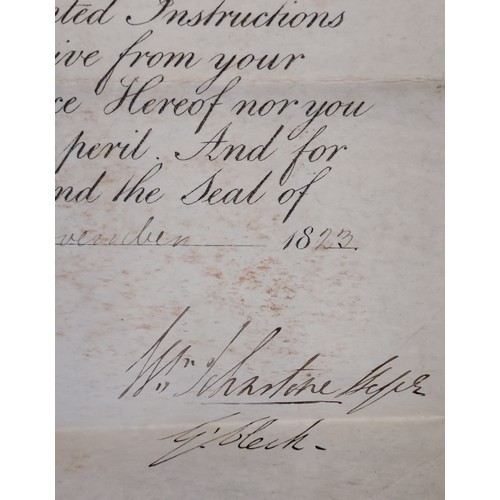 nted Instructions
ive from your
ce Hereof nor you
peril. And for
nd the Seal of
vember 1823.
Wm Johnstone